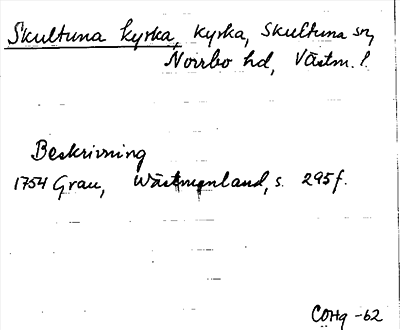 Skultuna kyrka, kyrka, Skultuna sn,
Norrbo hd, Västm. l.
Beskrivning
1754 Grau, Wästmanland, s. 295 f.
COHg -62